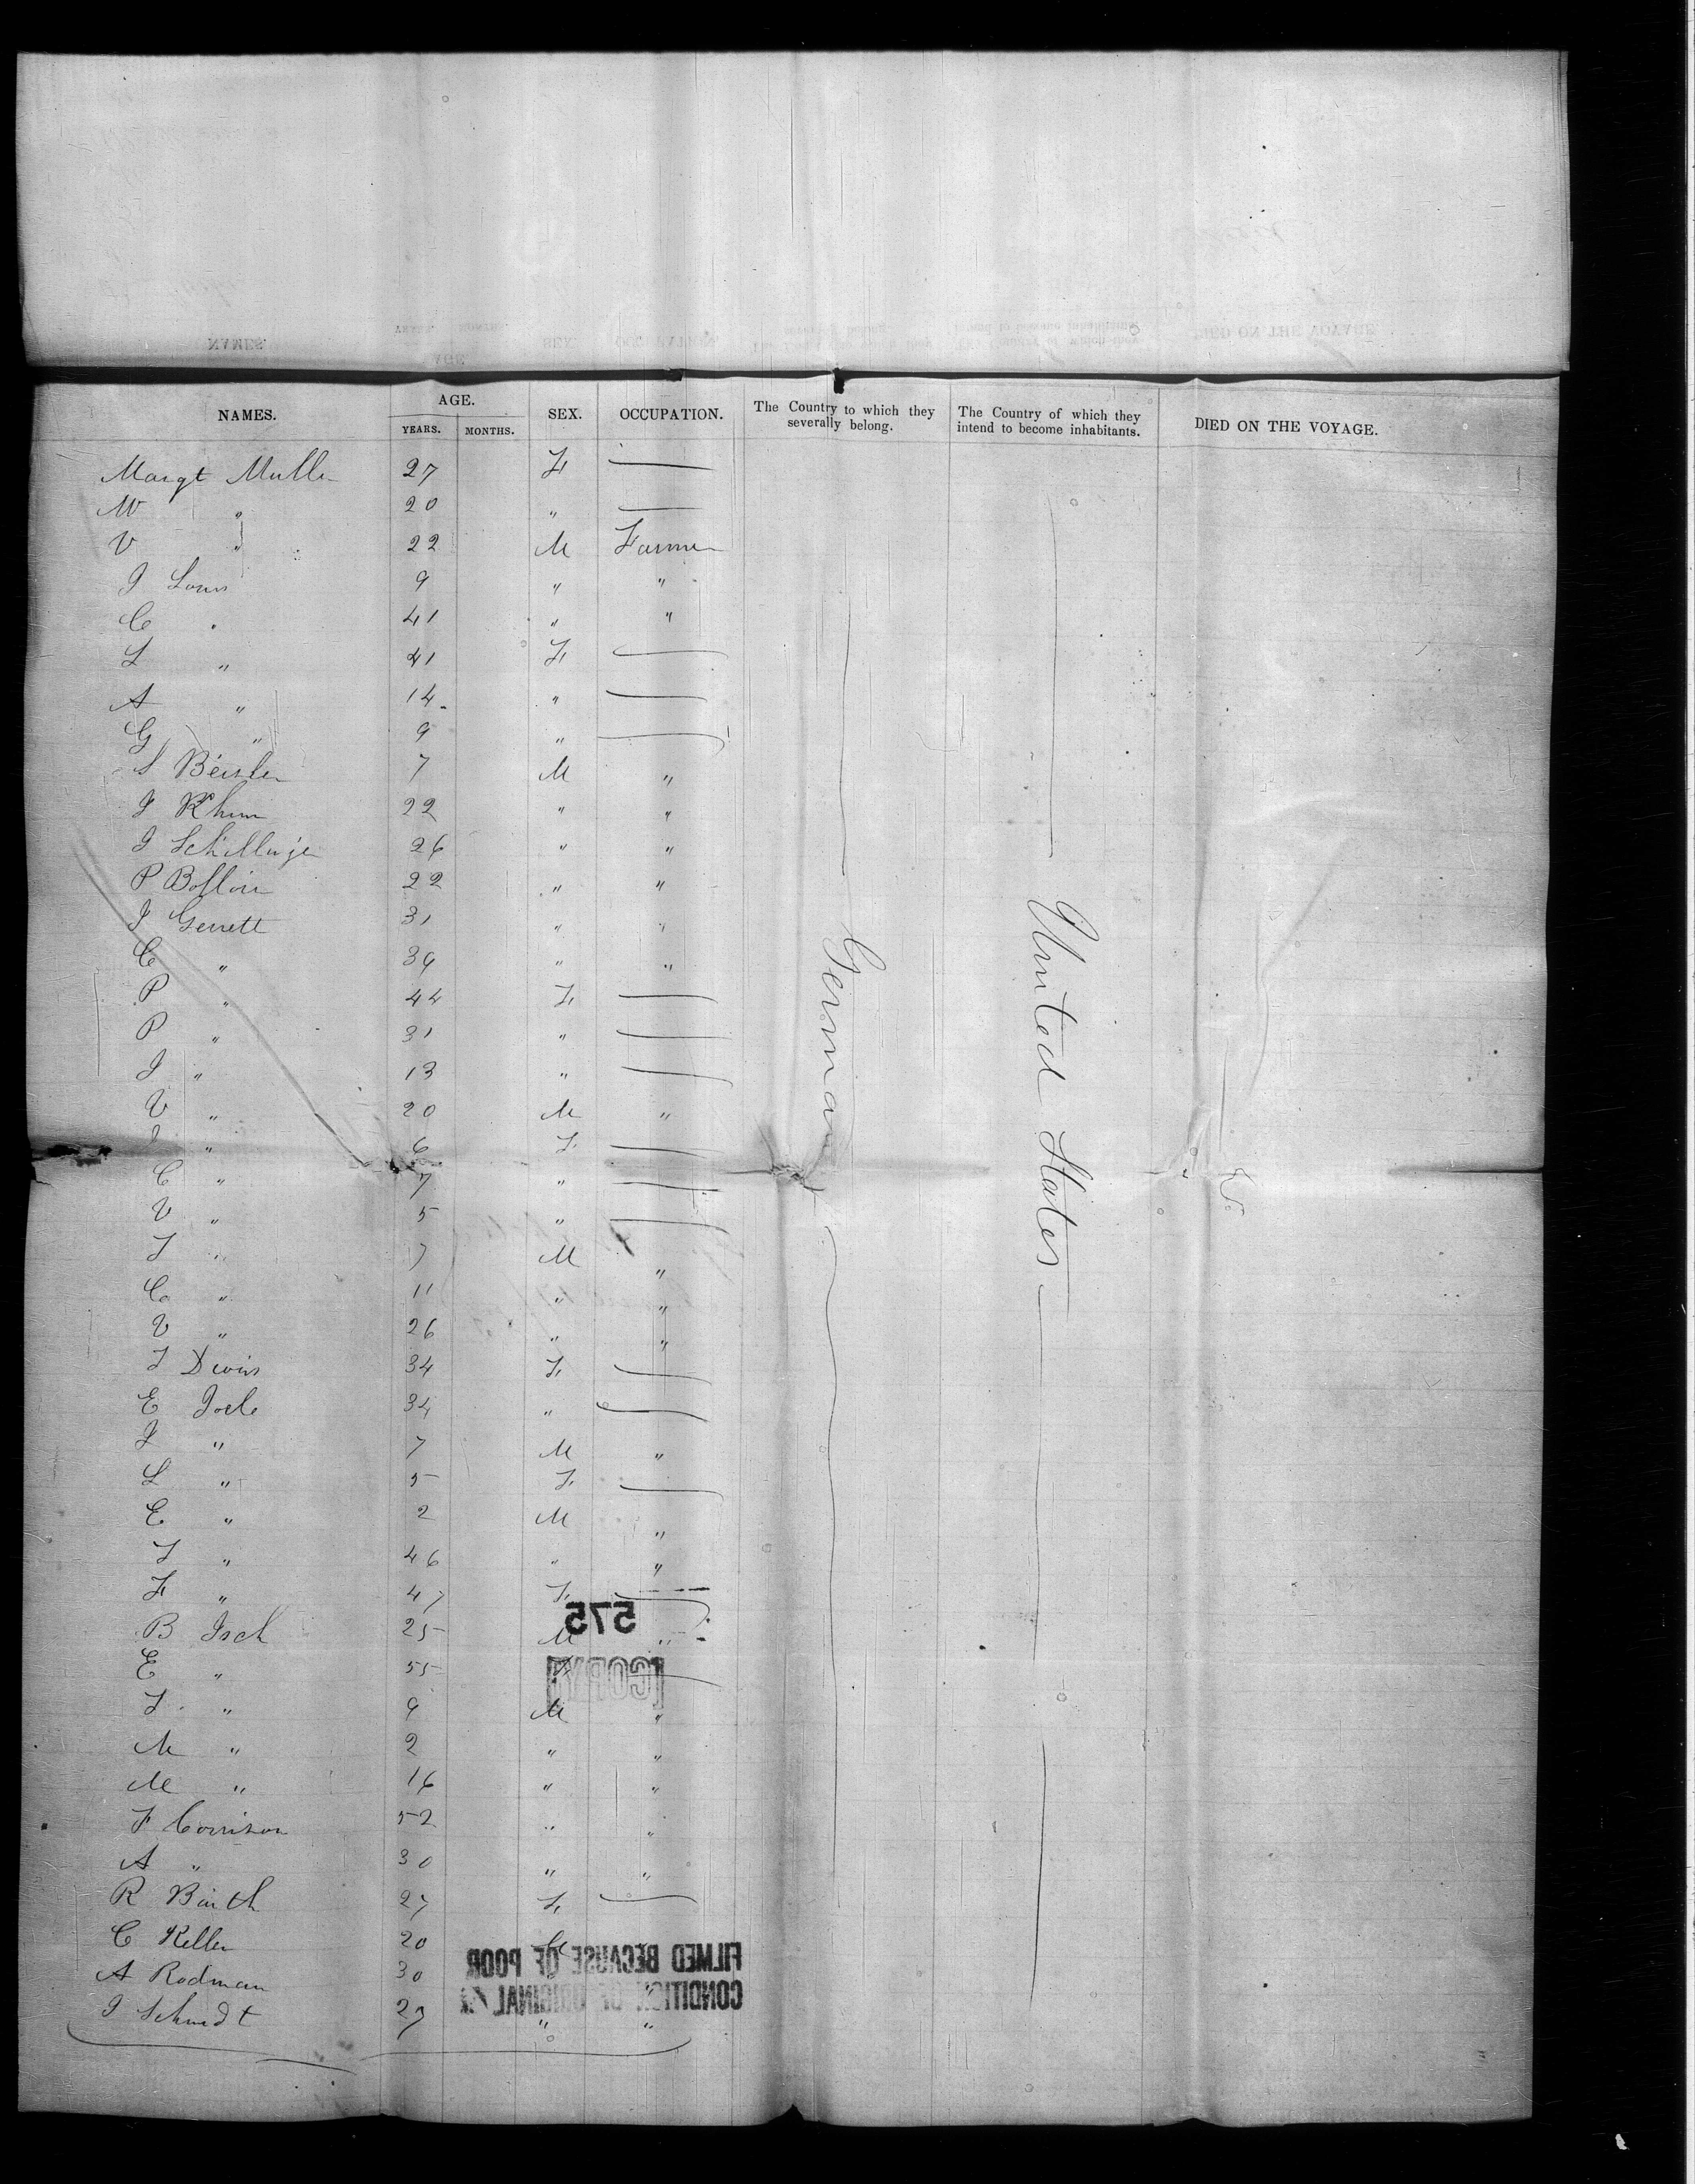 NAMES. AGE. SEX. OCCUPATION. The Country to which they severally belong. The Country of which they intend to become inhabitants. DIED ON THE VOYAGE.
YEARS. MONTHS.
Margt Muller 27 F —
W " 20 " —
V " 22 M Farmer
J Louis 9 " "
C " 41 " "
L " 41 F —
A " 14 " —
G " 9 " —
S Beisler 7 M "
J Rhum 22 " "
J Schillinger 26 " "
P 22 " "
J Gerrett 31 " "
C " 39 " "
P " 44 F —
P " 31 " —
J " 13 " —
V " 20 M "
" 6 F —
C " 7 " —
V " 5 " —
J " 7 M "
C " 11 " "
V " 26 " "
J 34 F —
E Joele 34 " —
J " 7 M "
L " 5 F —
E " 2 M "
J " 46 " "
F " 47 F —
B Isch 25 M "
E " 55 F —
J " 9 M "
M " 2 " "
M " 16 " "
F Corrison 52 " "
A " 30 " "
R Barth 27 F —
C Keller 20 M
A Rodman 30
J Schmidt 27 " "
Germany
United States
575
COPY
FILMED BECAUSE OF POOR
CONDITION OF ORIGINAL